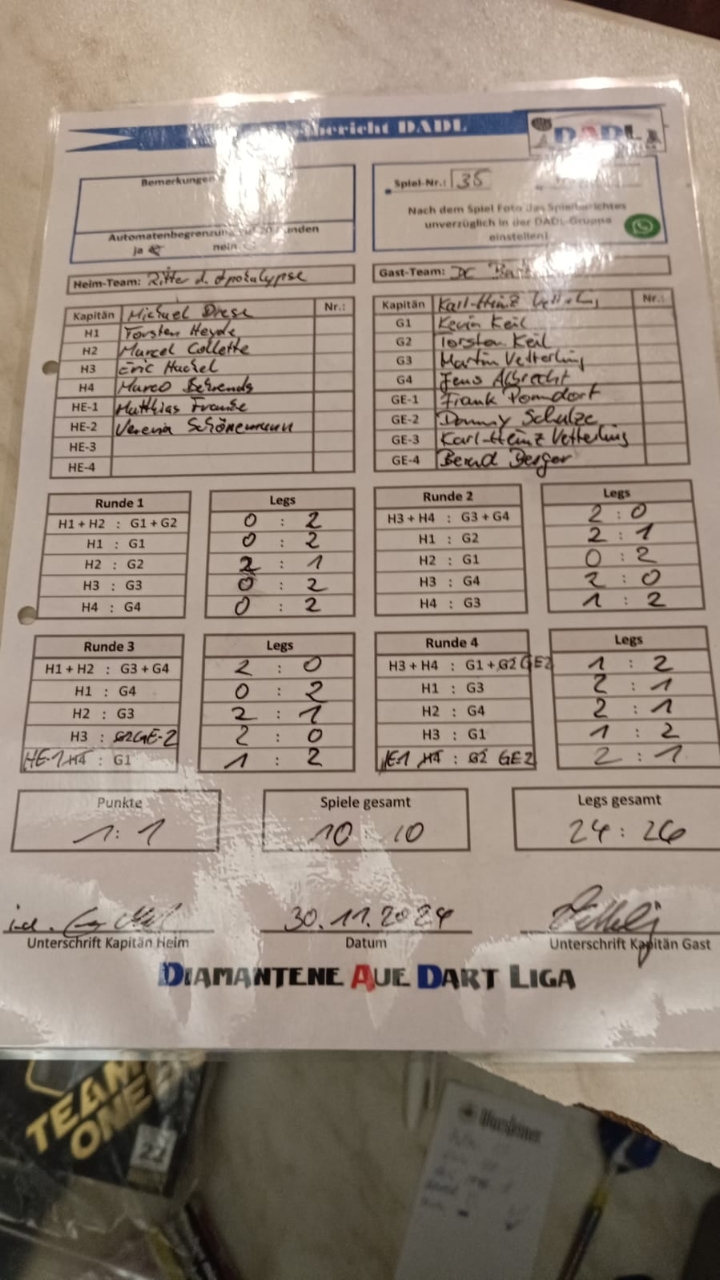 bericht DADL
DADL
Bemerkungen
Spiel-Nr.: 35
Nach dem Spiel Foto das Spielberichtes
unverzüglich in der DADL-Gruppe
einstellen!
Automatenbegrenzung
ja nein
Heim-Team: Ritter d. Apokalypse
Gast-Team: DC
Kapitän Michael Drese Nr.:
H1 Torsten Heyde
H2 Marcel Collette
H3 Eric Hackel
H4 Marco Behrends
HE-1 Matthias Franke
HE-2 Verena Schönemann
HE-3
HE-4
Kapitän Karl-Heinz Vetterling Nr.:
G1 Kevin Keil
G2 Torsten Keil
G3 Martin Vetterling
G4 Jens Albrecht
GE-1 Frank Pomdorf
GE-2 Danny Schulze
GE-3 Karl-Heinz Vetterling
GE-4 Bernd Berger
Runde 1 Legs
H1 + H2 : G1 + G2 0 : 2
H1 : G1 0 : 2
H2 : G2 2 : 1
H3 : G3 0 : 2
H4 : G4 0 : 2
Runde 2 Legs
H3 + H4 : G3 + G4 2 : 0
H1 : G2 2 : 1
H2 : G1 0 : 2
H3 : G4 2 : 0
H4 : G3 1 : 2
Runde 3 Legs
H1 + H2 : G3 + G4 2 : 0
H1 : G4 0 : 2
H2 : G3 2 : 1
H3 : G2 GE-2 2 : 0
HE-1 H4 : G1 1 : 2
Runde 4 Legs
H3 + H4 : G1 + G2 GE2 1 : 2
H1 : G3 2 : 1
H2 : G4 2 : 1
H3 : G1 1 : 2
HE1 H4 : G2 GE2 2 : 1
Punkte Spiele gesamt Legs gesamt
1 : 1 10 : 10 24 : 26
30.11.2024
Unterschrift Kapitän Heim Datum Unterschrift Kapitän Gast
DIAMANTENE AUE DART LIGA
TEAM
ONE